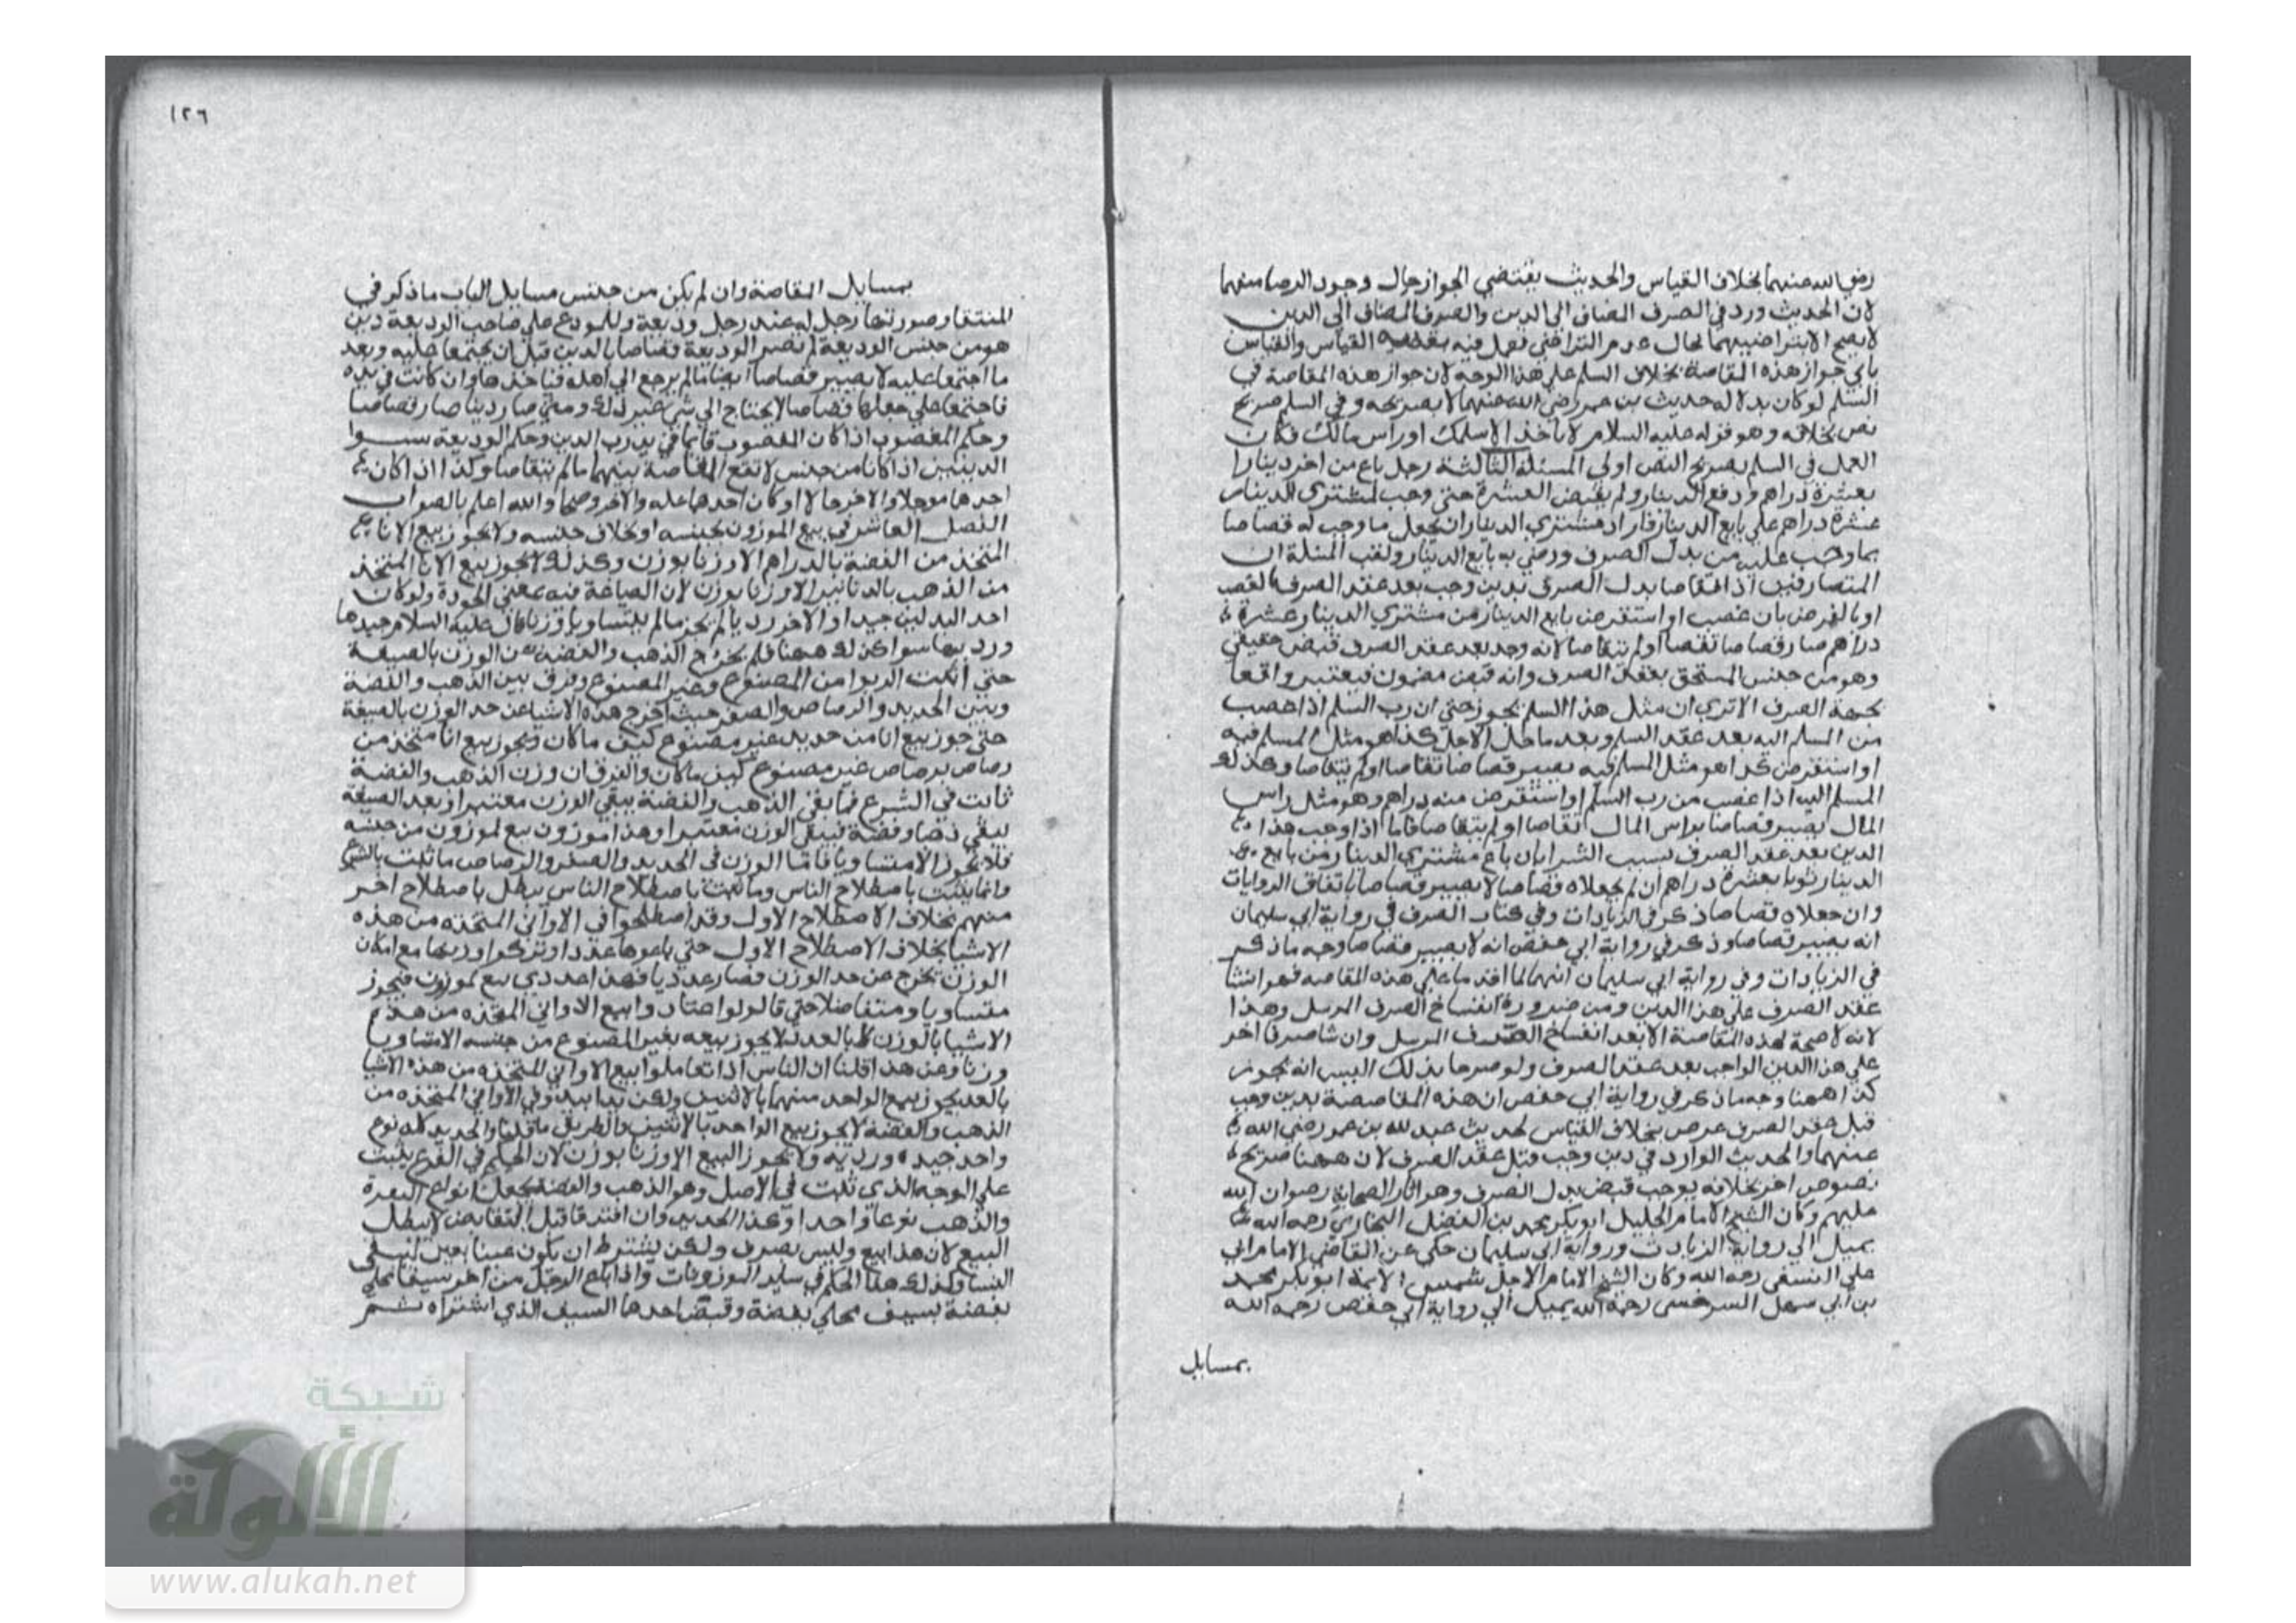 رضي الله عنهما بخلاف القياس والحديث يقتضي الجواز حال وجود الرضا منهما
لان الحديث ورد في الصرف المضاف الى الدين والصرف المضاف الى الدين
لا يصح الا بتراضيهما فحال عدم التراضي نعمل فيه القياس والقياس
يابي جواز هذه المقاصة بخلاف السلم على هذا الوجه لان جواز هذه المقاصة في
السلم لو كان بدلالة حديث بن عمر رضي الله عنهما لا بصريحه وفي السلم صريح
نص بخلافه وهو قوله عليه السلام لا تاخذ الا سلمك او راس مالك فكان
العمل في السلم بصريح النص اولى المسئلة الثالثة رجل باع من اخر دينارا
بعشرة دراهم ودفع الدينار ولم يقبض العشرة حتى وجب لمشتري الدينار
عشرة دراهم على بايع الدينار فاراد مشتري الدينار ان يجعل ما وجب له قصاصا
بما وجب عليه من بدل الصرف ورضي به بايع الدينار ولقب المسئلة ان
المتصارفين اذا تقاصا بدل الصرف بدين وجب بعد عقد الصرف بالغصب
او بالقرض بان غصب او استقرض بايع الدينار من مشتري الدينار عشرة
دراهم صار قصاصا تقاصا او لم يتقاصا لانه وجد بعد عقد الصرف قبض حقيقي
وهو من جنس المستحق بعقد الصرف وانه قبض مضمون فيعتبر واقعا
بجهة الصرف الا ترى ان مثل هذا في السلم يجوز حتى ان رب السلم اذا غصب
من المسلم اليه بعد عقد السلم وبعد ما حل الاجل كذا هو مثل المسلم فيه
او استقرض كذا هو مثل المسلم فيه يصير قصاصا تقاصا او لم يتقاصا وكذلك
المسلم اليه اذا غصب من رب السلم او استقرض منه دراهم وهو مثل راس
المال يصير قصاصا براس المال تقاصا او لم يتقاصا فاما اذا وجب هذا
الدين بعد عقد الصرف بسبب الشرا بان باع مشتري الدينار من بايع
الدينار ثوبا بعشرة دراهم ان لم يجعلاه قصاصا لا يصير قصاصا باتفاق الروايات
وان جعلاه قصاصا ذكر في الزيادات وفي كتاب الصرف في رواية ابي سليمان
انه يصير قصاصا وذكر في رواية ابي حفص انه لا يصير قصاصا وجه ما ذكر
في الزيادات وفي رواية ابي سليمان انهما لما اقدما على هذه المقاصة فهو انشا
عقد الصرف على هذا الدين ومن ضرورة انفساخ الصرف المرسل وهذا
لانه لا صحة لهذه المقاصة الا بعد انفساخ الصرف المرسل وان شا صرفا اخر
على هذا الدين الواجب بعد عقد الصرف ولو صرحا بذلك اليس انه يجوز
كذا ههنا وجه ما ذكر في رواية ابي حفص ان هذه المقاصصة بدين وجب
قبل عقد الصرف عرض بخلاف القياس لحديث عبد الله بن عمر رضي الله
عنهما والحديث الوارد في دين وجب قبل عقد الصرف لان ههنا صريح
نصوص اخر بخلافه يوجب قبض بدل الصرف وهو اثار الصحابة رضوان الله
عليهم وكان الشيخ الامام الجليل ابو بكر محمد بن الفضل البخاري رحمه الله
يميل الى رواية الزيادات ورواية ابي سليمان حكي عن القاضي الامام ابي
علي النسفي رحمه الله وكان الشيخ الامام الاجل شمس الايمة ابو بكر محمد
بن ابي سهل السرخسي رحمه الله يميل الى رواية ابي حفص رحمه الله
بمسايل
١٢٦
بمسايل المقاصة وان لم يكن من جنس مسايل الباب ما ذكر في
المنتقا وصورتها رجل له عند رجل وديعة وللمودع على صاحب الوديعة دين
هو من جنس الوديعة لم تصر الوديعة قصاصا بالدين قبل ان يجتمعا عليه وبعد
ما اجتمعا عليه لا يصير قصاصا ايضا ما لم يرجع الى اهله فياخذها وان كانت في يده
فاجتمعا على جعلها قصاصا لا يحتاج الى شي غير ذلك ومتى صار دينا صار قصاصا
وحكم المغصوب اذا كان المغصوب قايما في يد رب الدين وحكم الوديعة سوا
الدينين اذا كانا من جنس لا تقع المقاصة بينهما ما لم يتقاصا وكذا اذا كان
احدهما موجلا والاخر حالا او كان احدهما غلة والاخر وضحا والله اعلم بالصواب
الفصل العاشر في بيع الموزون بجنسه او بخلاف جنسه ولا يجوز بيع الانا
المتخذ من الفضة بالدراهم الا وزنا بوزن وكذلك لا يجوز بيع الانا المتخذ
من الذهب بالدنانير الا وزنا بوزن لان الصياغة فيه بمعنى الجودة ولو كان
احد البدلين جيدا والاخر رديا لم يجز ما لم يتساويا وزنا قال عليه السلام جيدها
ورديها سوا كذلك ههنا فلم يخرج الذهب والفضة عن الوزن بالصيغة
حتى اثبت الربوا من المصنوع وغير المصنوع وفرق بين الذهب والفضة
وبين الحديد والرصاص والصفر حيث اخرج هذه الاشيا عن حد الوزن بالصيغة
حتى جوز بيع انا من حديد غير مصنوع كيف ما كان وبجوز بيع انا متخذ من
رصاص برصاص غير مصنوع كيف ما كان والفرق ان وزن الذهب والفضة
ثابت في الشرع فما بقي الذهب والفضة يبقى الوزن معتبرا وبعد الصيغة
يبقى ذهبا وفضة فيبقى الوزن معتبرا وهذا موزون بيع لموزون من جنسه
فلا يجوز الا متساويا فاما الوزن في الحديد والصفر والرصاص ما ثبت بالشرع
وانما يثبت باصطلاح الناس وما ثبت باصطلاح الناس يبطل باصطلاح اخر
منهم بخلاف الاصطلاح الاول وقد اصطلحوا في الاواني المتخذه من هذه
الاشيا بخلاف الاصطلاح الاول حتى باعوها عددا وتركوا وزنها مع امكان
الوزن يخرج عن حد الوزن فصار عدديا فهذا عددي بيع لموزون فيجوز
متساويا ومتفاضلا حتى قالوا لو اعتادوا بيع الاواني المتخذه من هذه
الاشيا بالوزن لا بالعدد لا يجوز بيعه بغير المصنوع من جنسه الا متساويا
وزنا وعن هذا قلنا ان الناس اذا تعاملوا بيع الاواني المتخذه من هذه الاشيا
بالعدد يجوز بيع الواحد منهما بالاثنين ولكن يدا بيد وفي الاواني المتخذه من
الذهب والفضة لا يجوز بيع الواحد بالاثنين والطريق ما قلنا والحديد كله نوع
واحد جيده ورديه ولا يجوز البيع الا وزنا بوزن لان الحكم في الفرع يثبت
على الوجه الذي ثبت في الاصل وهو الذهب والفضة انواع النقرة
والذهب نوعا واحدا وكذا الحديد وان افترقا قبل التقابض لا يبطل
البيع لان هذا بيع وليس بصرف ولكن يشترط ان يكون عينا بعين لينتفي
النسا وكذلك هذا الحكم في ساير الموزونات واذا باع الرجل من اخر سيفا محلى
بفضة بسيف محلى بفضة وقبض احدهما السيف الذي اشتراه ثم
شبكة
الألوكة
www.alukah.net